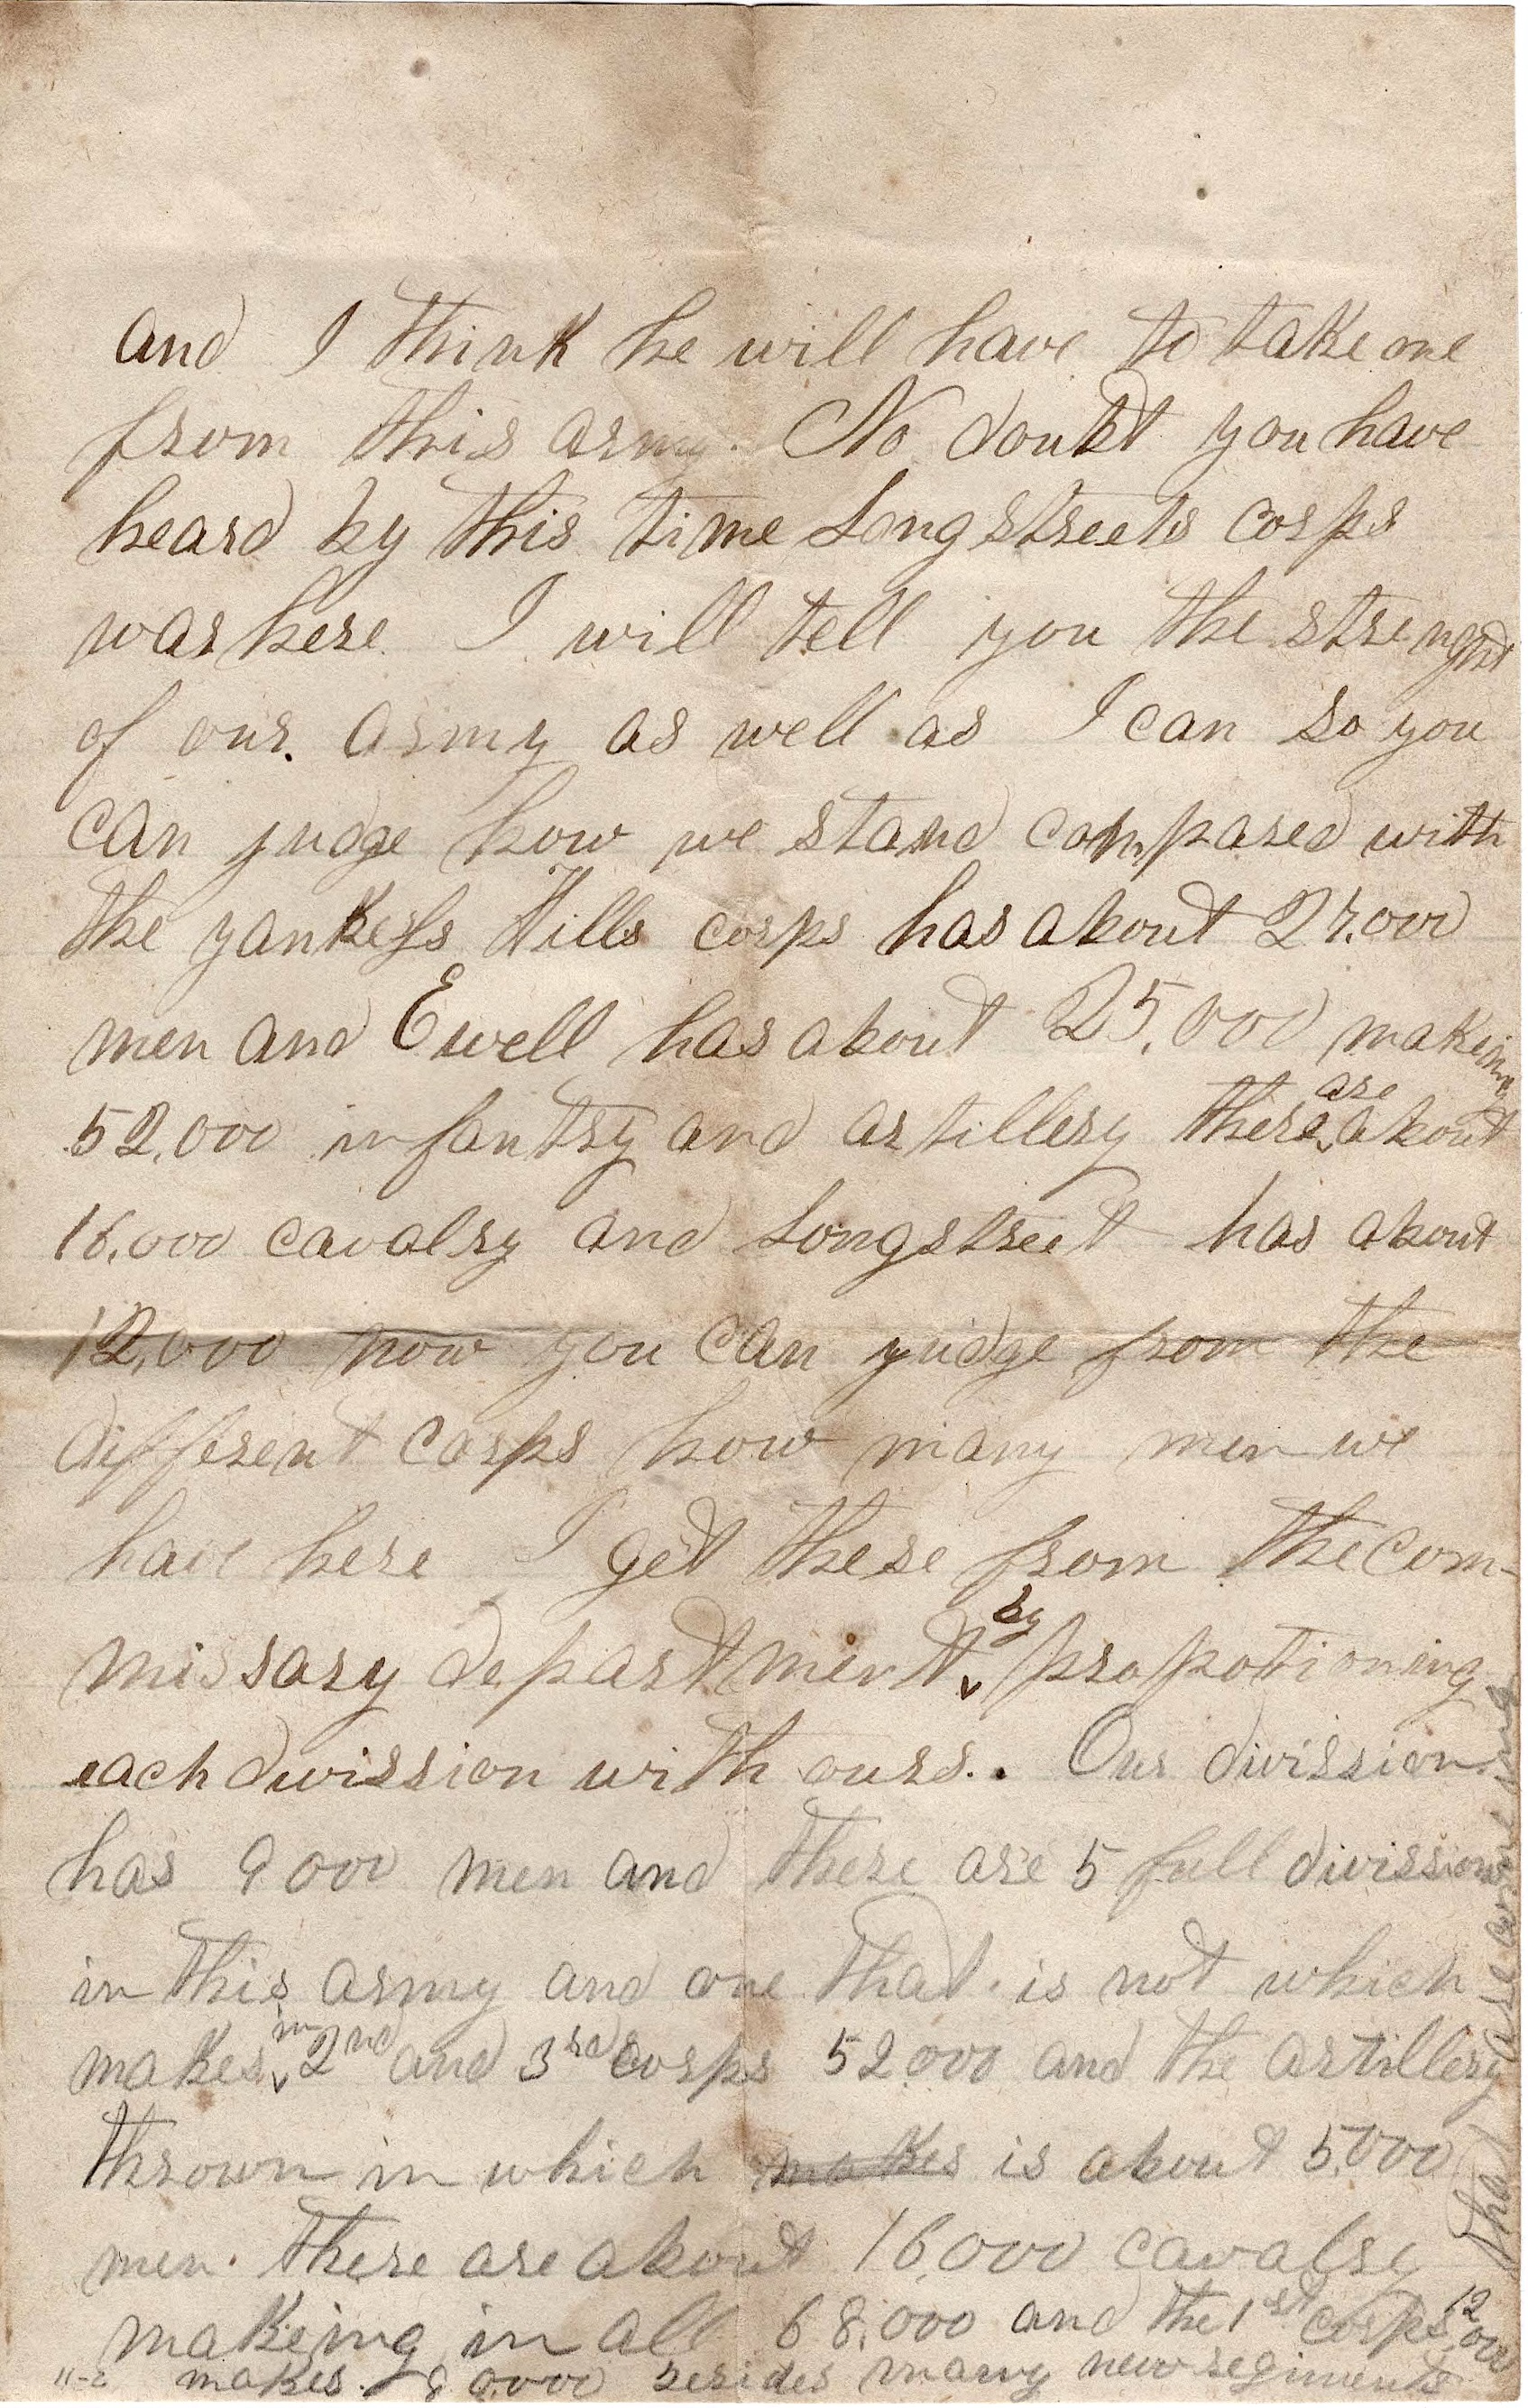 and I think he will have to take me
from this army. No doubt you have
heard by this time Longstreets corps
was here. I will tell you the strenght
of our. army as well as I can so you
can judge how we stand compared with
the yankeys Hills corps has about 27,000
men and Ewell has about 25,000 makeing
52,000 infantry and artillery there are about
16,000 cavalry and Longstreet has about
12,000 now you can judge from the
different corps how many men we
have here I get these from the com-
missary department by propotioning
each divission with ours.. Our divission
has 9000 men and there are 5 full divissions
in this army and one that is not which
makes in 2nd and 3rd corps 52000 and the artillery
thrown in which makes is about 5,000
men. There are about 16,000 cavalry
makeing in all 68,000 and the 1st corps 12,000
11-2 makes 80,000 besides many new regiments
that are comeing